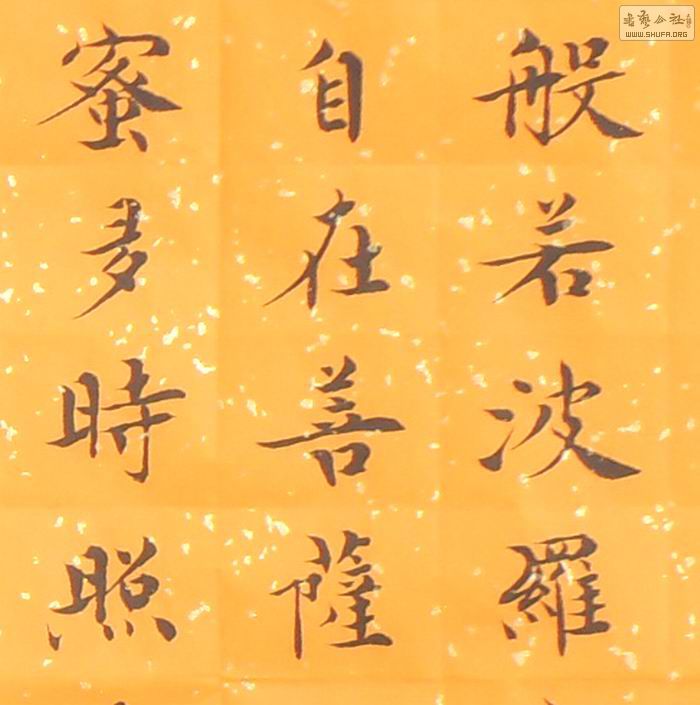 般若波羅
自在菩薩
蜜多時照
書藝公社
WWW.SHUFA.ORG